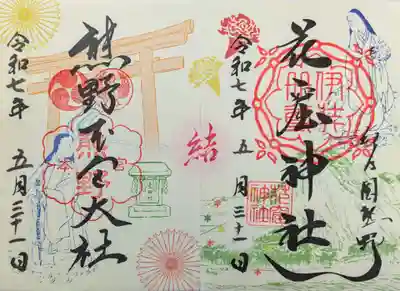 花窟神社
令和七年 五月三十一日
花窟神社
結
熊野本宮大社
熊野
本宮
令和七年 五月三十一日